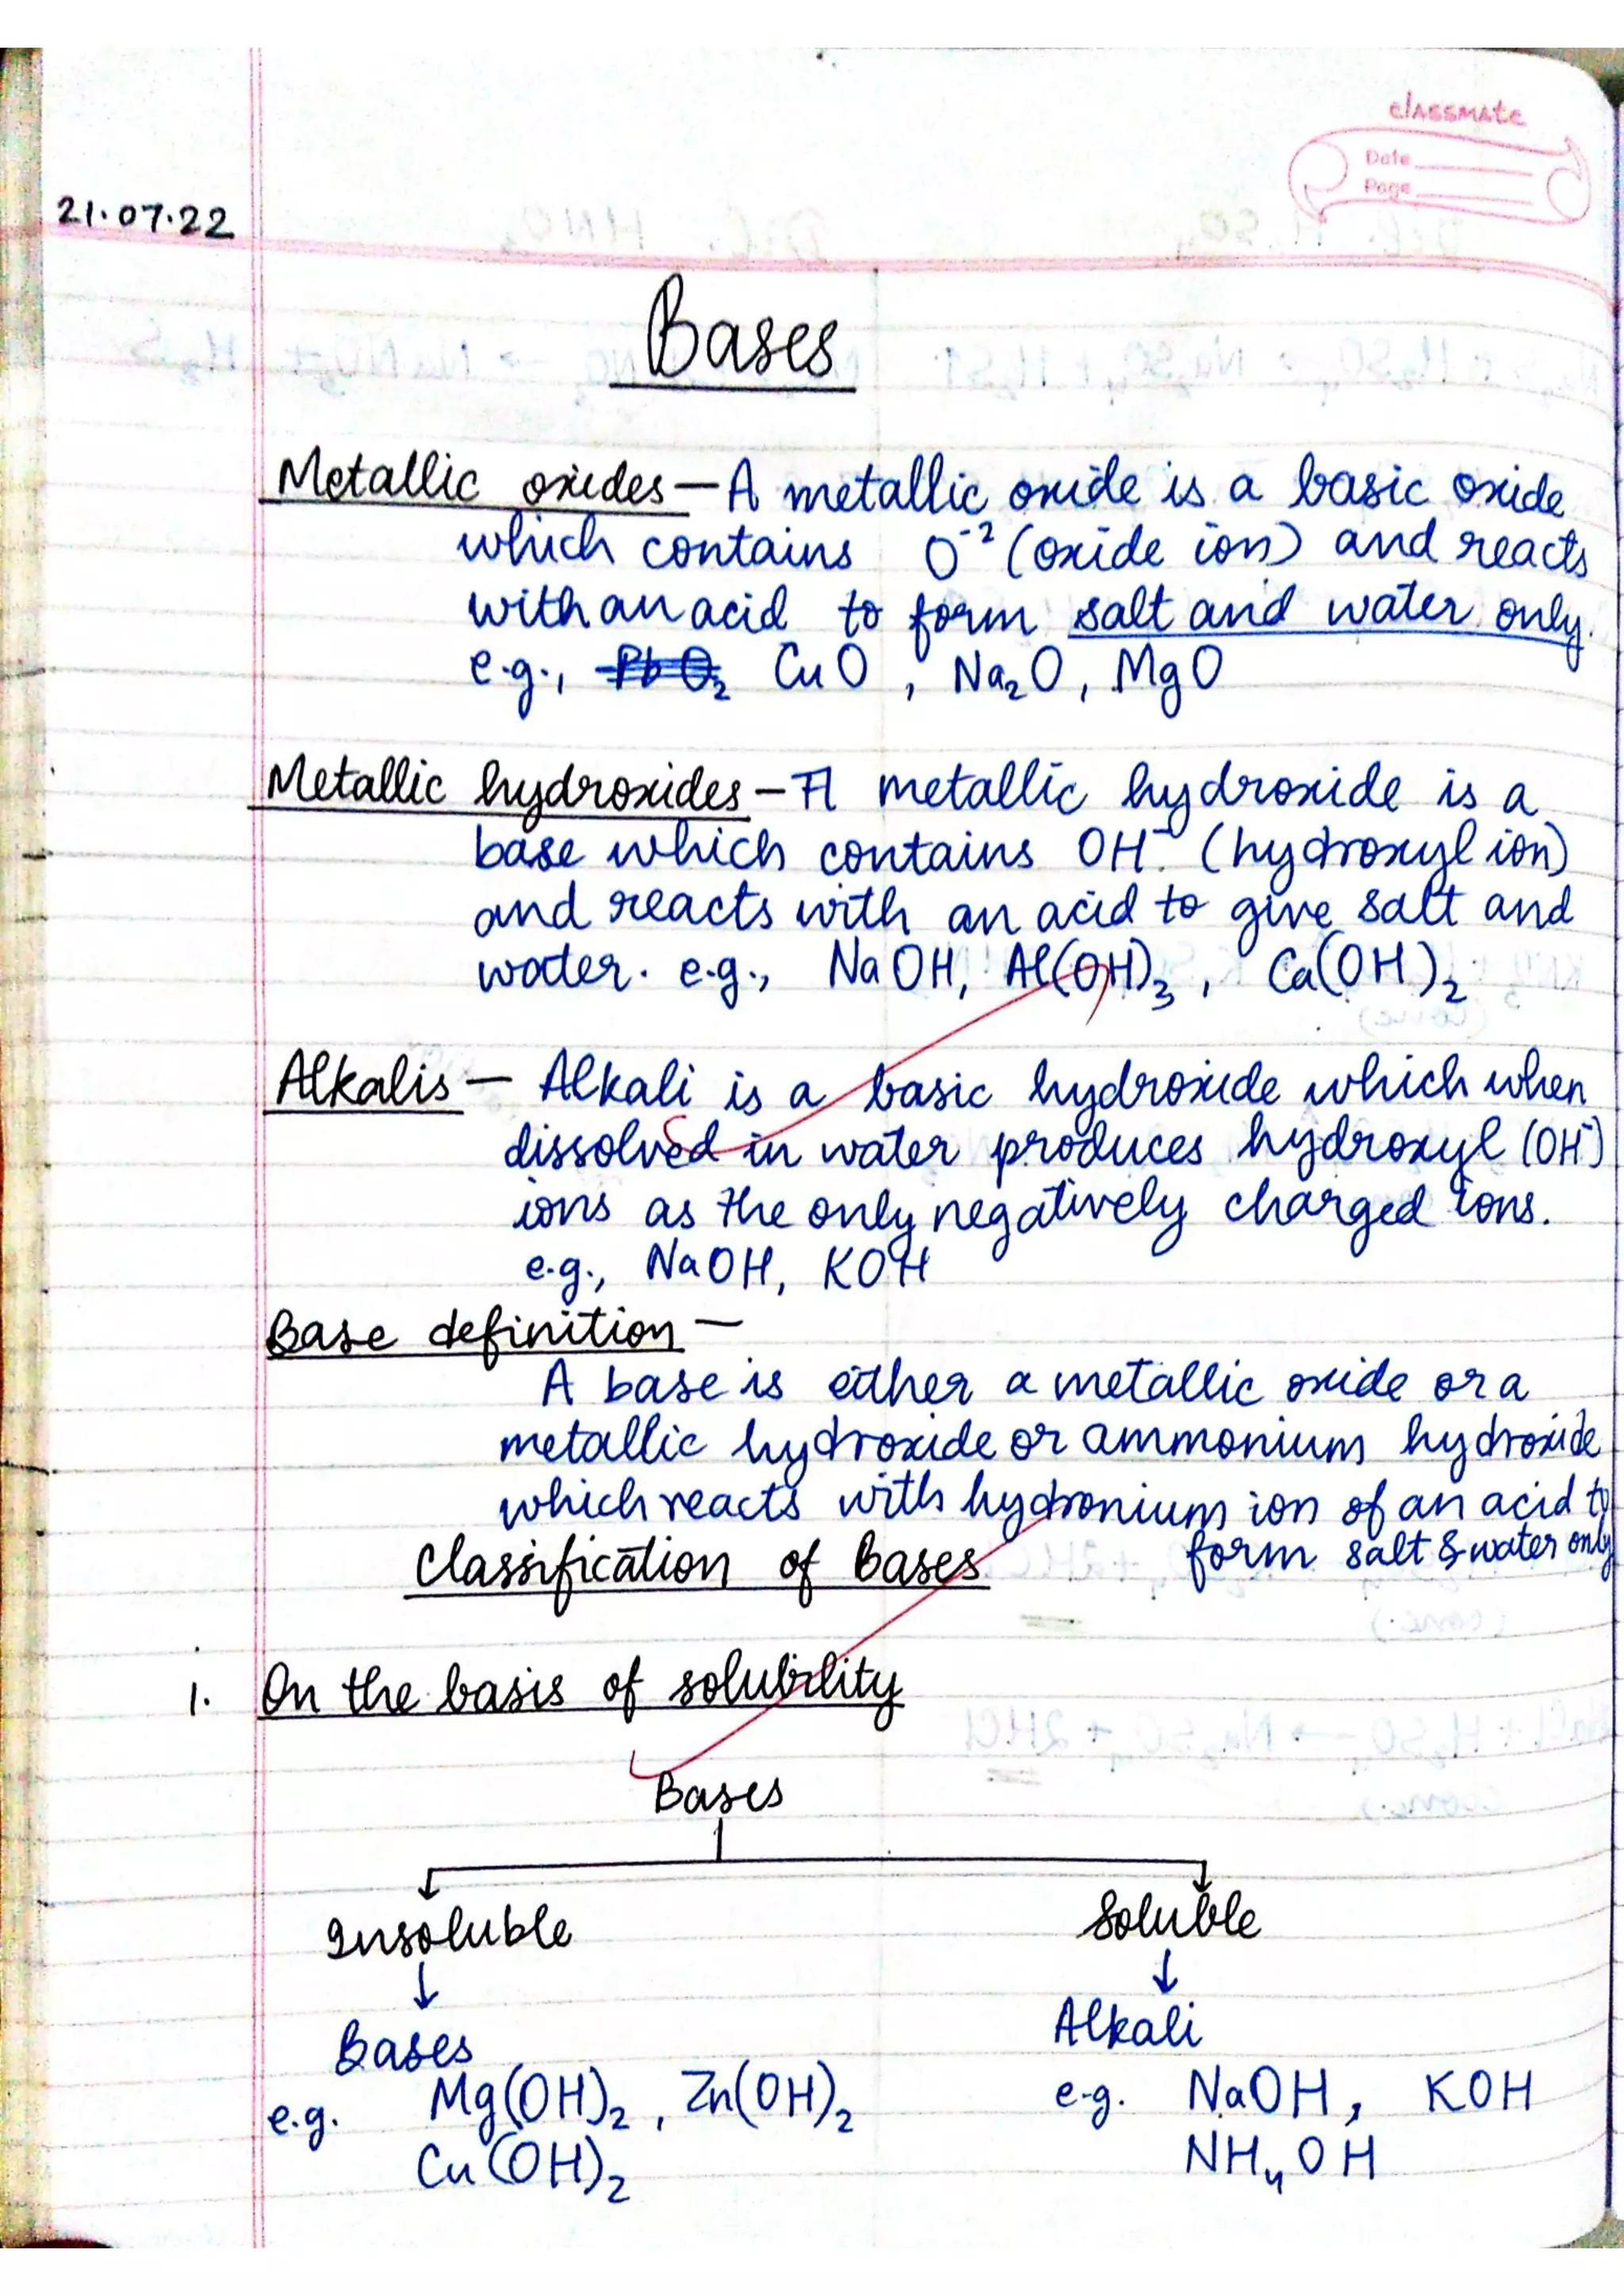 classmate
Date
Page
21.07.22
Bases
Metallic oxides — A metallic oxide is a basic oxide
which contains O⁻² (oxide ion) and reacts
with an acid to form salt and water only.
e.g., PbO₂ CuO, Na₂O, MgO
Metallic hydroxides – A metallic hydroxide is a
base which contains OH⁻ (hydroxyl ion)
and reacts with an acid to give salt and
water. e.g., NaOH, Al(OH)₃, Ca(OH)₂
Alkalis — Alkali is a basic hydroxide which when
dissolved in water produces hydroxyl (OH⁻)
ions as the only negatively charged ions.
e.g., NaOH, KOH
Base definition —
A base is either a metallic oxide or a
metallic hydroxide or ammonium hydroxide
which reacts with hydronium ion of an acid to
form salt & water only
Classification of Bases
1. On the basis of solubility
Bases
Insoluble Soluble
↓ ↓
Bases Alkali
e.g. Mg(OH)₂, Zn(OH)₂ e.g. NaOH, KOH
Cu(OH)₂ NH₄OH